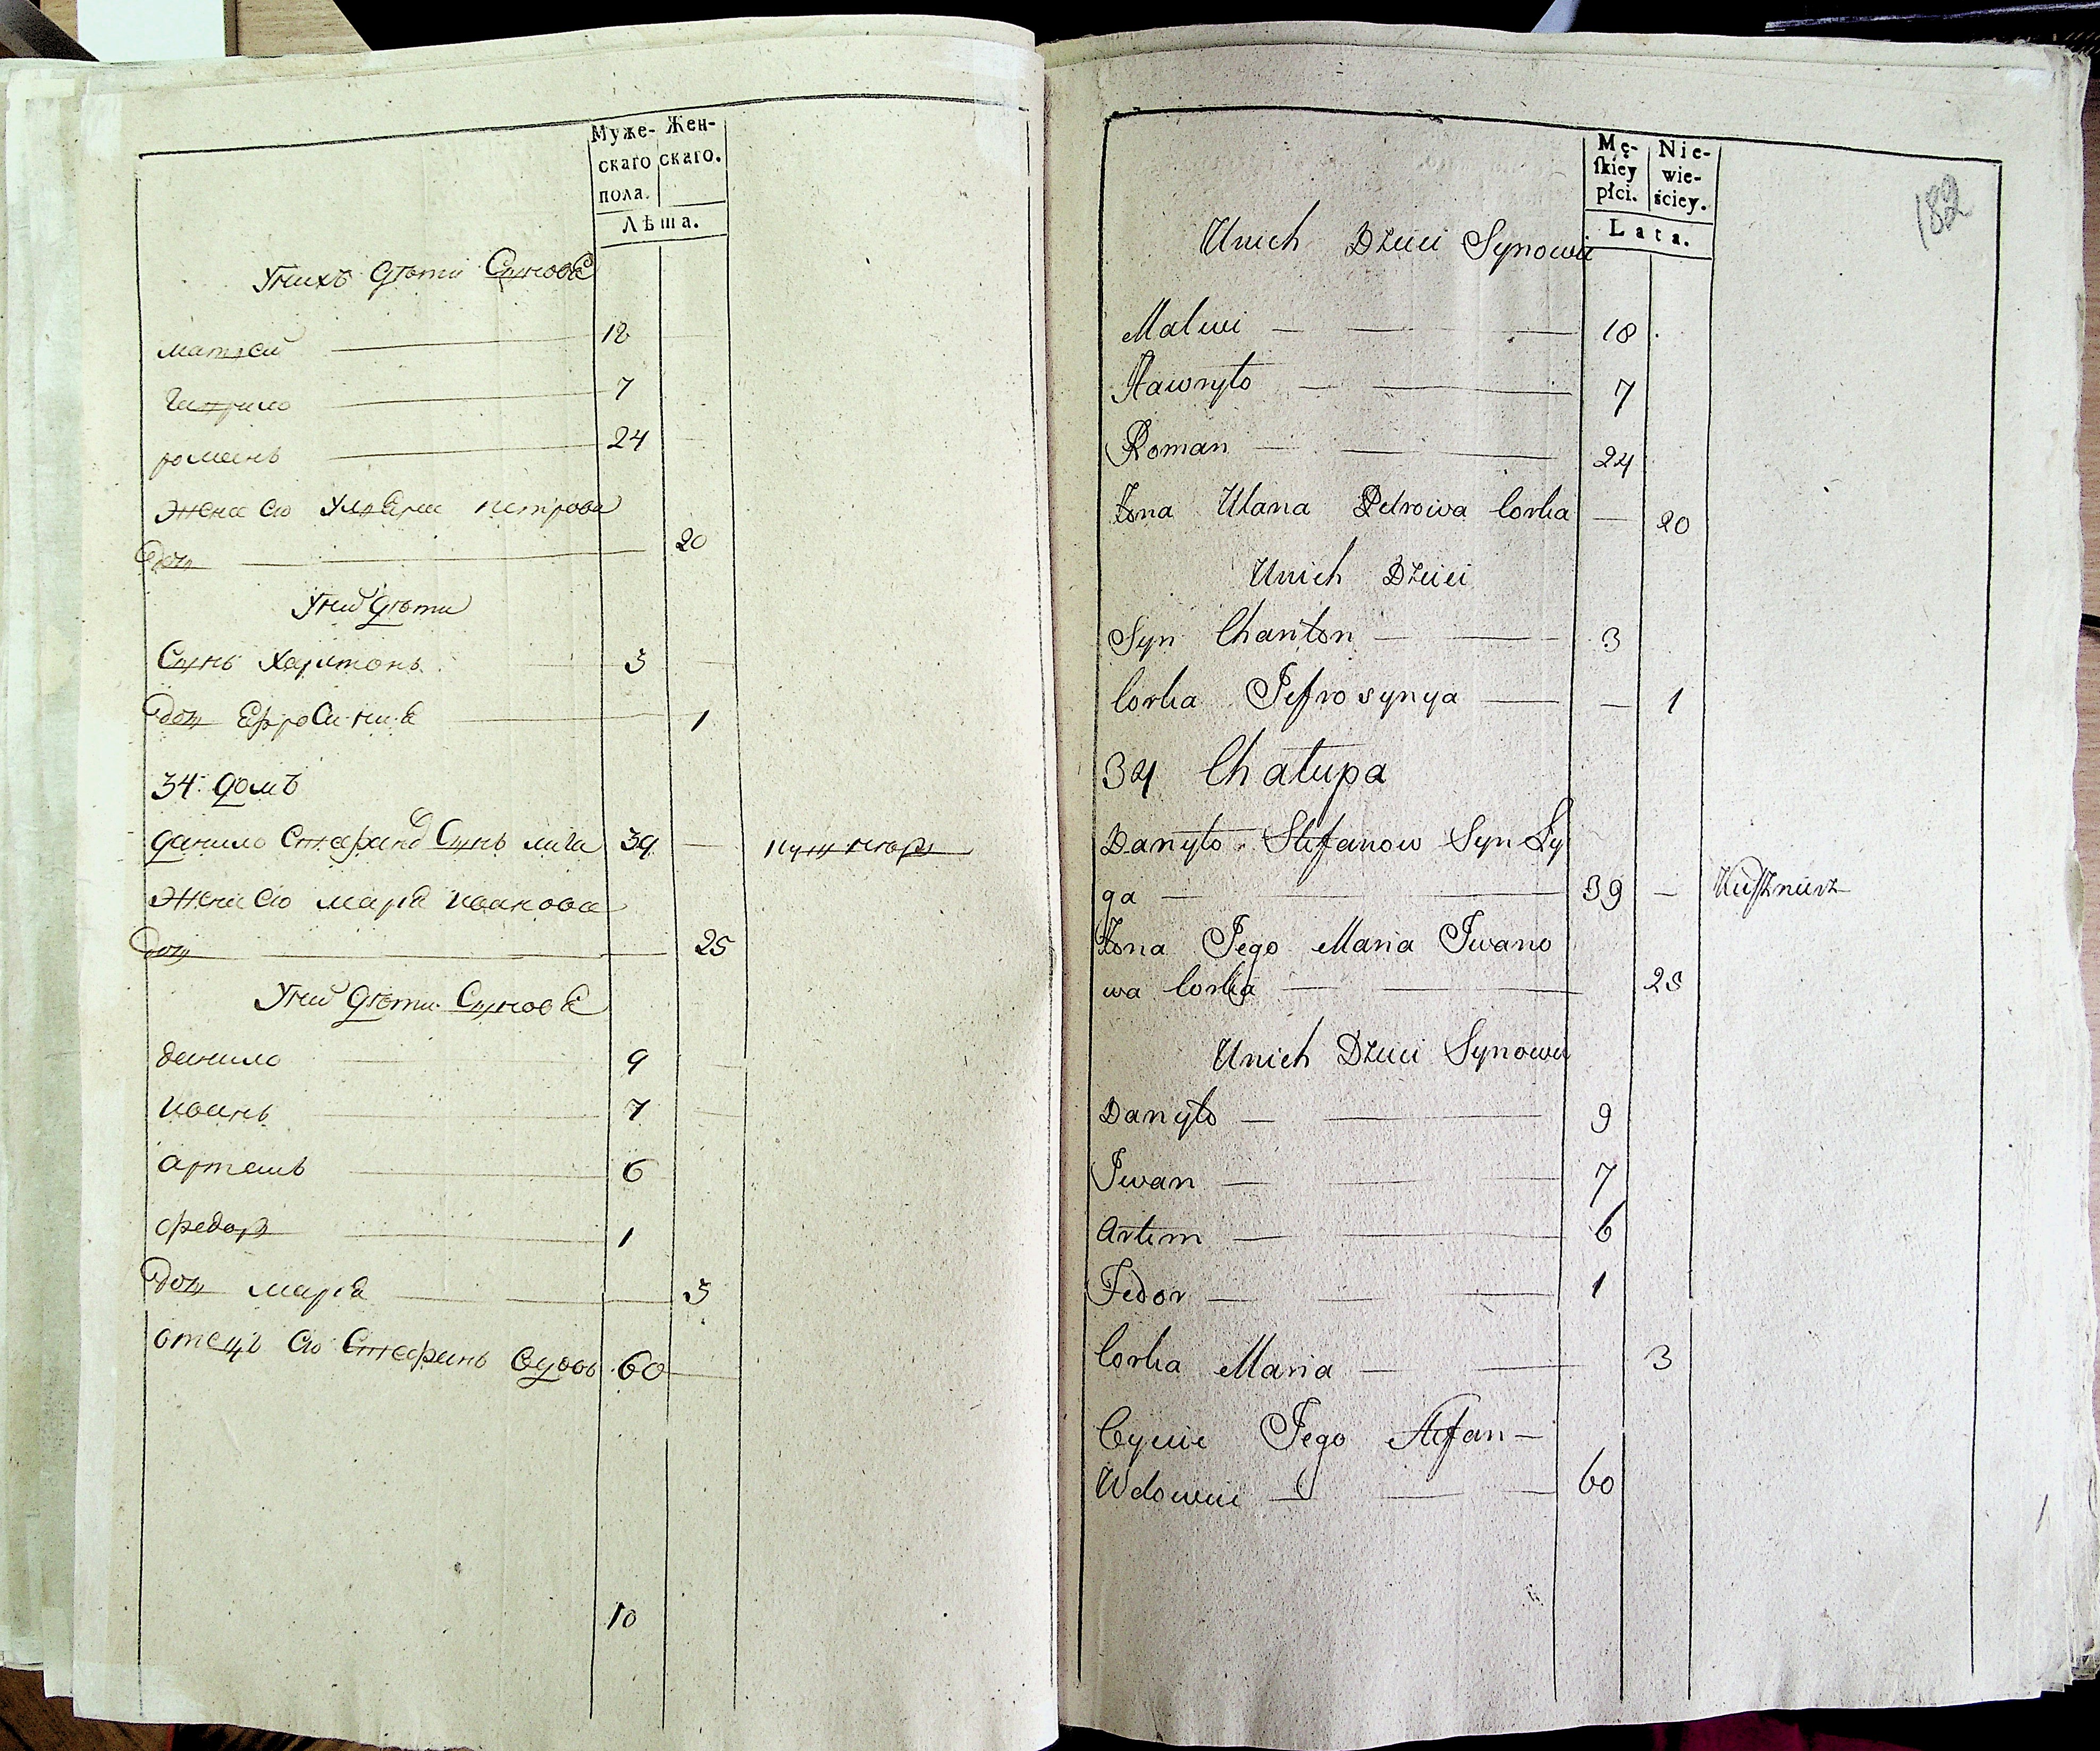 Муже- Жен-
скаго скаго.
пола.
Лѣта.
Унихъ дѣти Сынове
матвей 18
Гаврило 7
романъ 24
Жена его Улияна петрова
доч 20
Уних дѣти
Сынъ Харитонъ 3
доч Ефросиния 1
34. домъ
данило Стефановъ Сынъ лига 39 — кушнеръ
Жена его мария иванова
доч 25
Уних дѣти Сынове
данило 9
иванъ 7
артемъ 6
федоръ 1
доч мария 3
отецъ его Стефанъ вдовъ 60
10
182
Mę- Nie-
ſkiey wie-
płci. ściey.
Lata.
Unich Dzieci Synowie
Matwi — — 18
Hawryło — — 7
Roman — — 24
Żona Ulana Petrowa Corka — 20
Unich Dzieci
Syn Chariton — — 3
Corka Jefrosynya — — 1
34 Chałupa
Danyło Stefanow Syn Ly
ga — — 39 — Kuſznierz
Żona Jego Maria Iwano
wa Corka — — 25
Unich Dzieci Synowie
Danyło — — 9
Iwan — — 7
Artem — — 6
Fedor — — 1
Corka Maria — — 3
Oyciec Jego Stefan —
Wdowiec — — 60